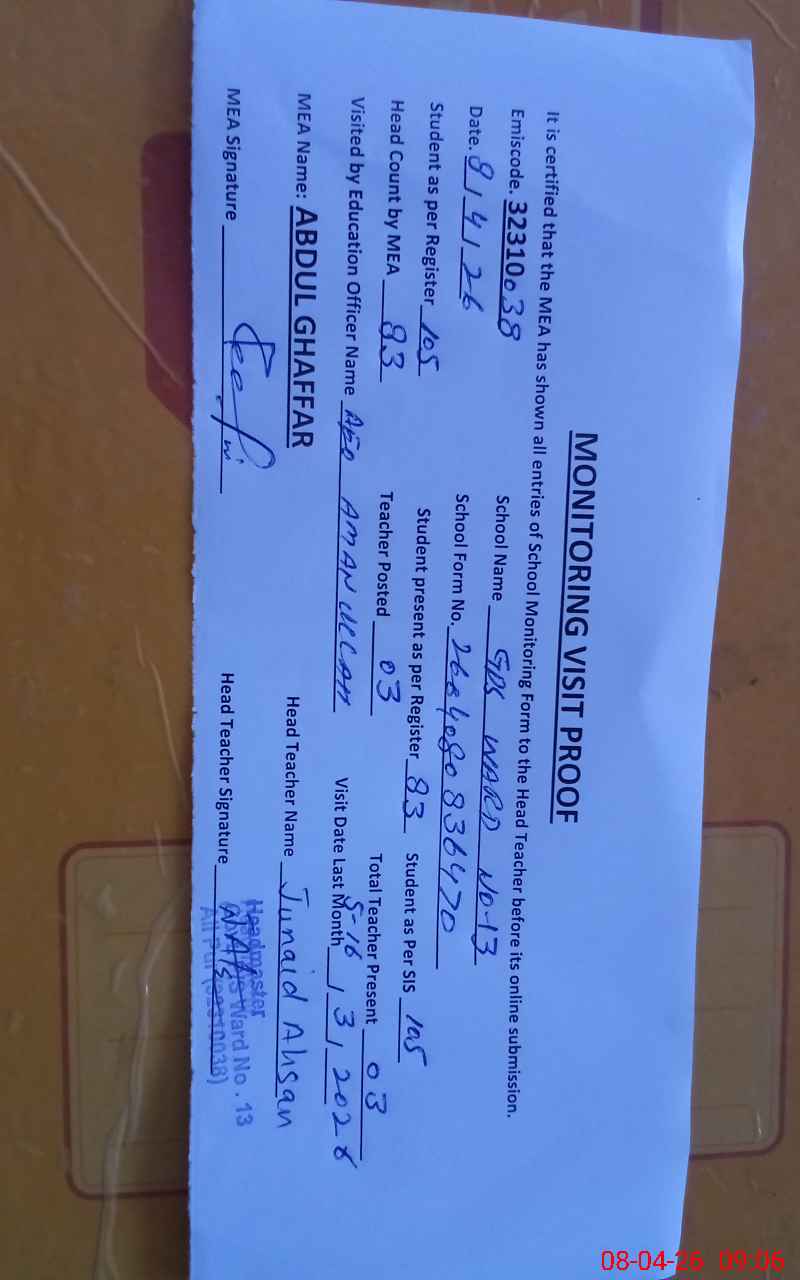 MONITORING VISIT PROOF
It is certified that the MEA has shown all entries of School Monitoring Form to the Head Teacher before its online submission.
Emiscode. 32310038 School Name GPS WARD NO-13
Date. 8/4/26 School Form No. 2604080836470
Student as per Register 105 Student present as per Register 83 Student as Per SIS 105
Head Count by MEA 83 Teacher Posted 03 Total Teacher Present 03
Visited by Education Officer Name AEO AMAN ULLAH Visit Date Last Month 5-16/3/2026
MEA Name: ABDUL GHAFFAR Head Teacher Name Junaid Ahsan
MEA Signature Head Teacher Signature
Headmaster
Ward No. 13
Ali Pur (32310038)
08-04-26 09:06